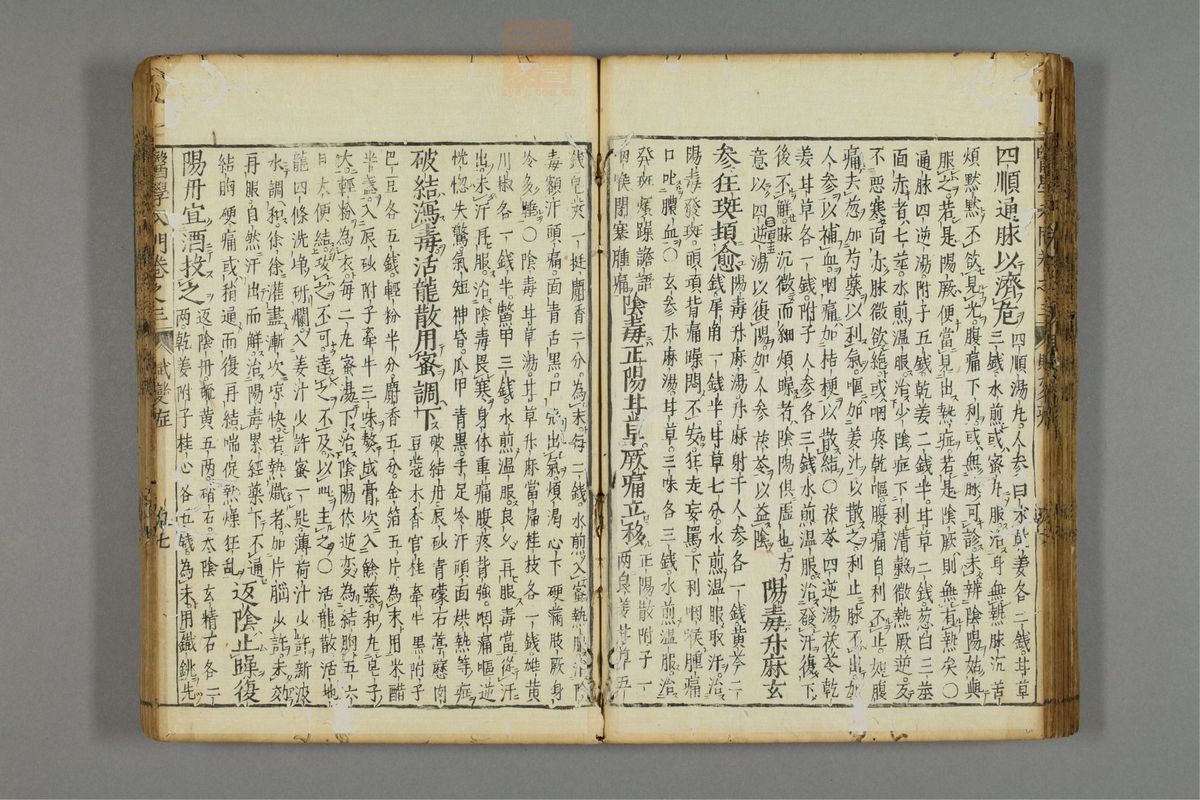 四順通脉以濟危 四順湯九人參甘草乾姜各二錢甘草
三錢水煎或蜜九服治耳無熱脉沉苦
煩默默不欲見光腹痛下利或無脉可診未辨陰陽姑與
服之若是陽厥便當見出熱症若是陰厥則無有熱矣〇
通脉四逆湯附子五錢乾姜二錢半甘草二錢葱白三莖
面赤者七莖水煎温服治少陰症下利清穀微熱厥逆及
不惡寒面赤脉微欲絶或咽疼乾嘔腹痛自利不止如腹
痛去葱加芍藥以利氣嘔加姜汁以散之利止脉不出加
人參以補血咽痛加桔梗以散結〇茯苓四逆湯茯苓乾
姜甘草各一錢附子人參各三錢水煎温服治發汗復下
後不解脉沉微而細煩躁者陰陽俱虛也方
意以四逆湯以復陽加人參茯苓以益陰 陽毒升麻玄
參狂斑頓愈 陽毒升麻湯升麻射干人參各一錢黄芩二
錢犀角一錢半甘草七分水煎温服取汗治
陽毒發斑頭項背痛躁悶不安狂走妄罵下利咽喉腫痛
口吐膿血〇玄參升麻湯甘草三味各三錢水煎温服治
發斑煩躁譫語
咽喉閉塞腫痛 陰毒正陽甘草厥痛立移 正陽散附子一
兩良姜甘草五
錢皂莢一挺麝香二分為末每二錢水煎入蜜熱服治陰
毒額汗頭痛面青舌黒口張出氣煩渴心下硬滿肢厥身
冷多睡〇陰毒甘草湯甘草升麻當歸桂枝各一錢雄黄
川椒各一錢半鱉甲三錢水煎温服良久再服毒當從汗
出未汗再服治陰毒畏寒身体重痛腹疼背強咽痛嘔逆
恍惚失驚氣短神昏爪甲青黒手足冷汗頭面烘熱等症
破結憑毒活龍散用蜜調下 破結丹辰砂青礞石葶藶肉
豆蔻木香官桂牽牛黒附子
巴豆各五錢輕粉半分麝香五分金箔五片為末用米醋
半盞入辰砂附子牽牛三味熬成膏次入餘藥和九皂子
大輕粉為衣每二九蜜湯下治陰陽伏逆変為結胸五六
日大便結攻之不可達之不及以此主之〇活龍散活地
龍四條洗浄研爛入姜汁少許蜜一匙薄荷汁少許新汲
水調和徐徐灌盡漸次凉快若熱熾者加片腦少許未効
再服自然汗出而解治陽毒累經藥下不通
結胸硬痛或稍通而復再結喘促熱燥狂乱 返陰止躁復
陽丹宜酒投之 返陰丹硫黄五兩硝石太陰玄精石各二
兩乾姜附子桂心各五錢為末用鐵銚先
醫學入門卷之三